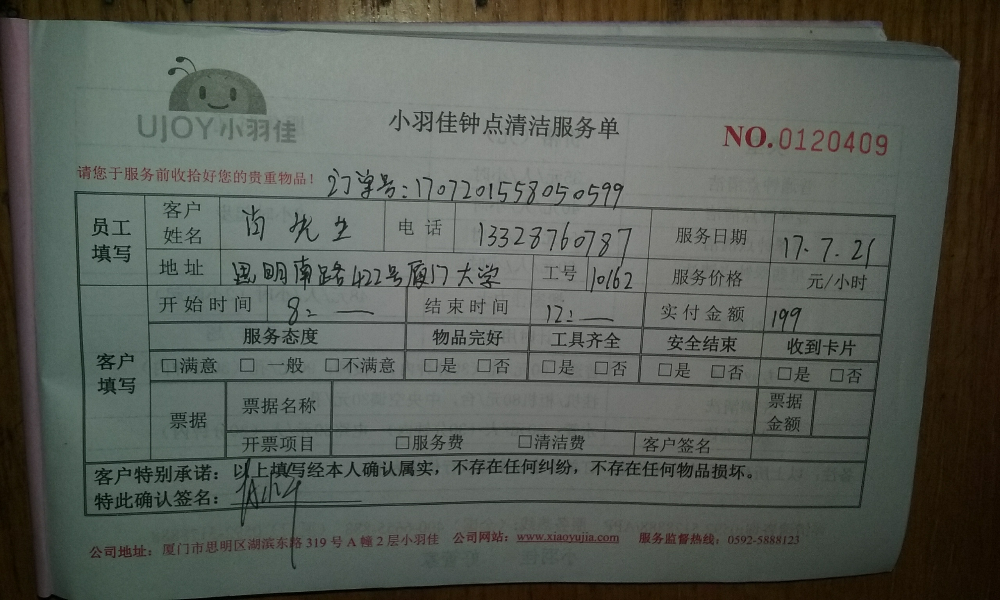 UJOY小羽佳
小羽佳钟点清洁服务单
NO.0120409
请您于服务前收拾好您的贵重物品！ 订单号:1707201558050599
员工填写 客户姓名 肖先生 电话 13328760787 服务日期 17.7.21
地址 思明南路422号厦门大学 工号 10162 服务价格 元/小时
客户填写 开始时间 8:— 结束时间 12:— 实付金额 199
服务态度 物品完好 工具齐全 安全结束 收到卡片
□满意 □一般 □不满意 □是 □否 □是 □否 □是 □否 □是 □否
票据 票据名称 票据金额
开票项目 □服务费 □清洁费 客户签名
客户特别承诺：以上填写经本人确认属实，不存在任何纠纷，不存在任何物品损坏。
特此确认签名：
公司地址：厦门市思明区湖滨东路319号A幢2层小羽佳 公司网站：www.xiaoyujia.com 服务监督热线：0592-5888123